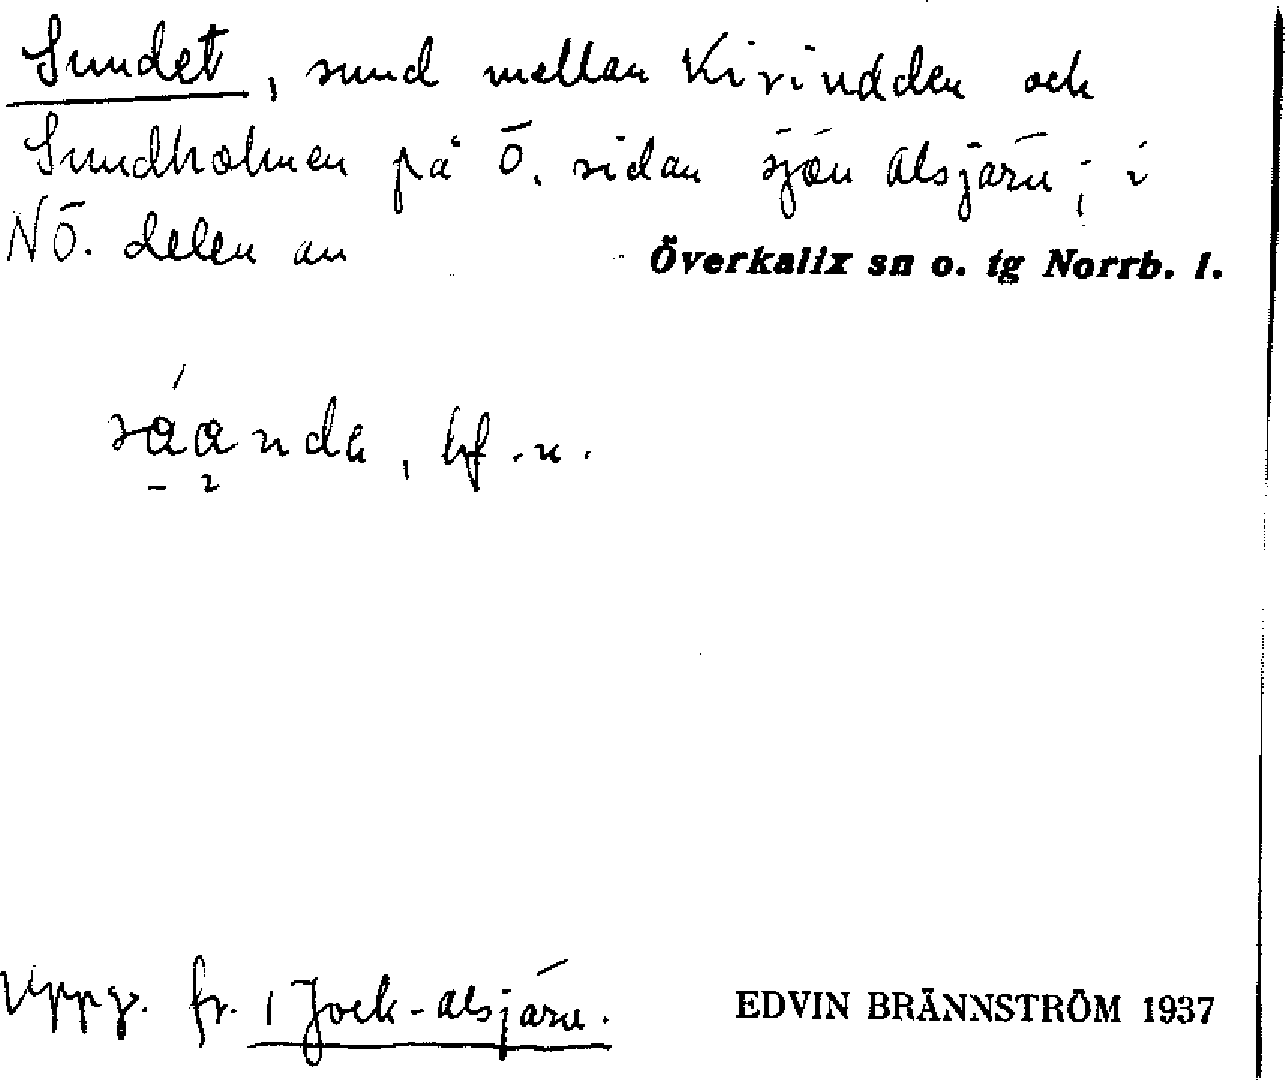 Sundet, sund mellan Kirindden och
Sundholmen på Ö. sidan sjön Alsjärv; i
NÖ. delen av Överkalix sn o. tg Norrb. l.
sáanda, bf. n.
Uppg. fr. i Jock-Alsjärv.
EDVIN BRÄNNSTRÖM 1937